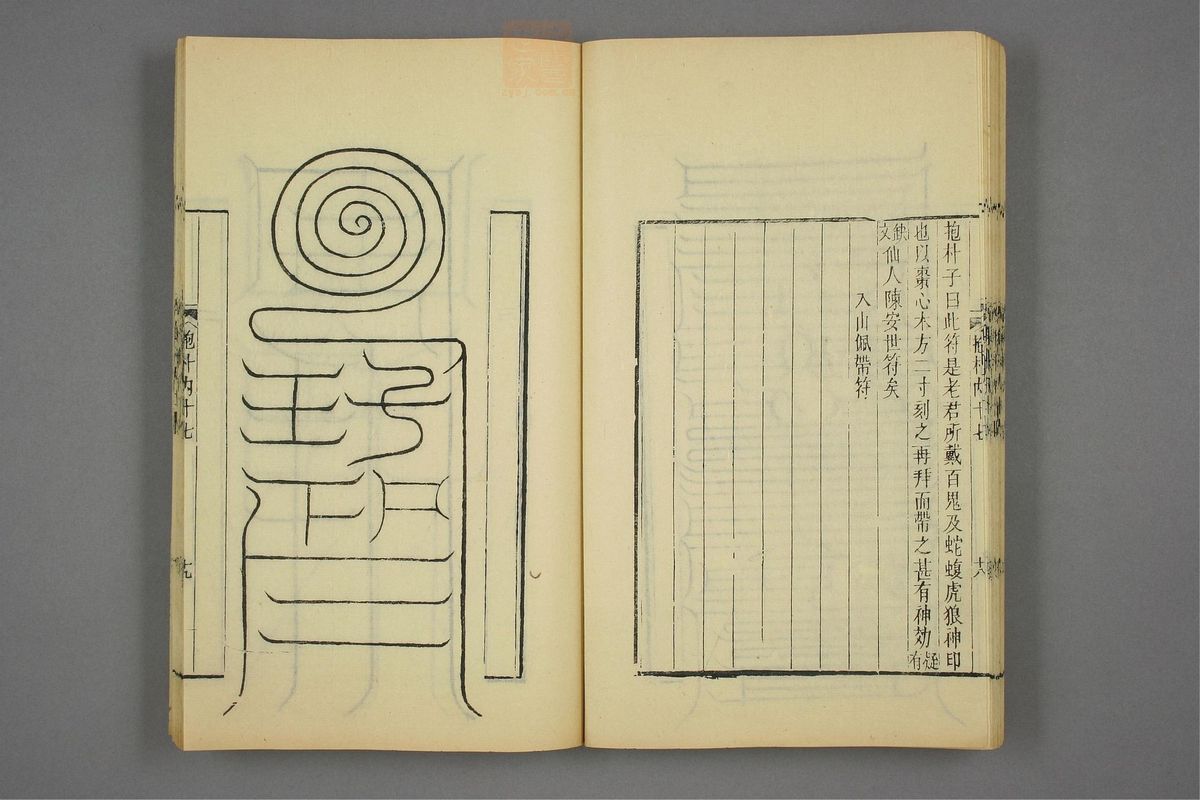 抱朴子曰此符是老君所戴百鬼及蛇蝮虎狼神印
也以棗心木方二寸刻之再拜而帶之甚有神効疑有
缺文仙人陳安世符矣
入山佩帶符
抱朴內十七
十八
抱朴內十七
十九